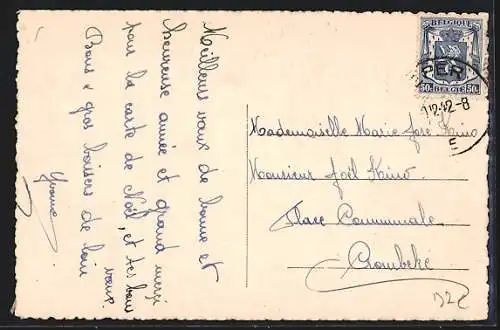 Meilleurs vœux de bonne et
heureuse année et grand merci
pour la carte de Noël, et tes bons
vœux
Bons & gros baisers de loin
Yvonne
BELGIQUE
50c BELGIË 50c
PER
12-8
E
Mademoiselle Marie José
Monsieur Joël
Place Communale
Crombeke